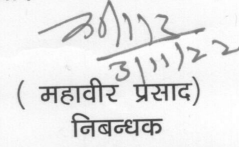 3/11/22
( महावीर प्रसाद)
निबन्धक